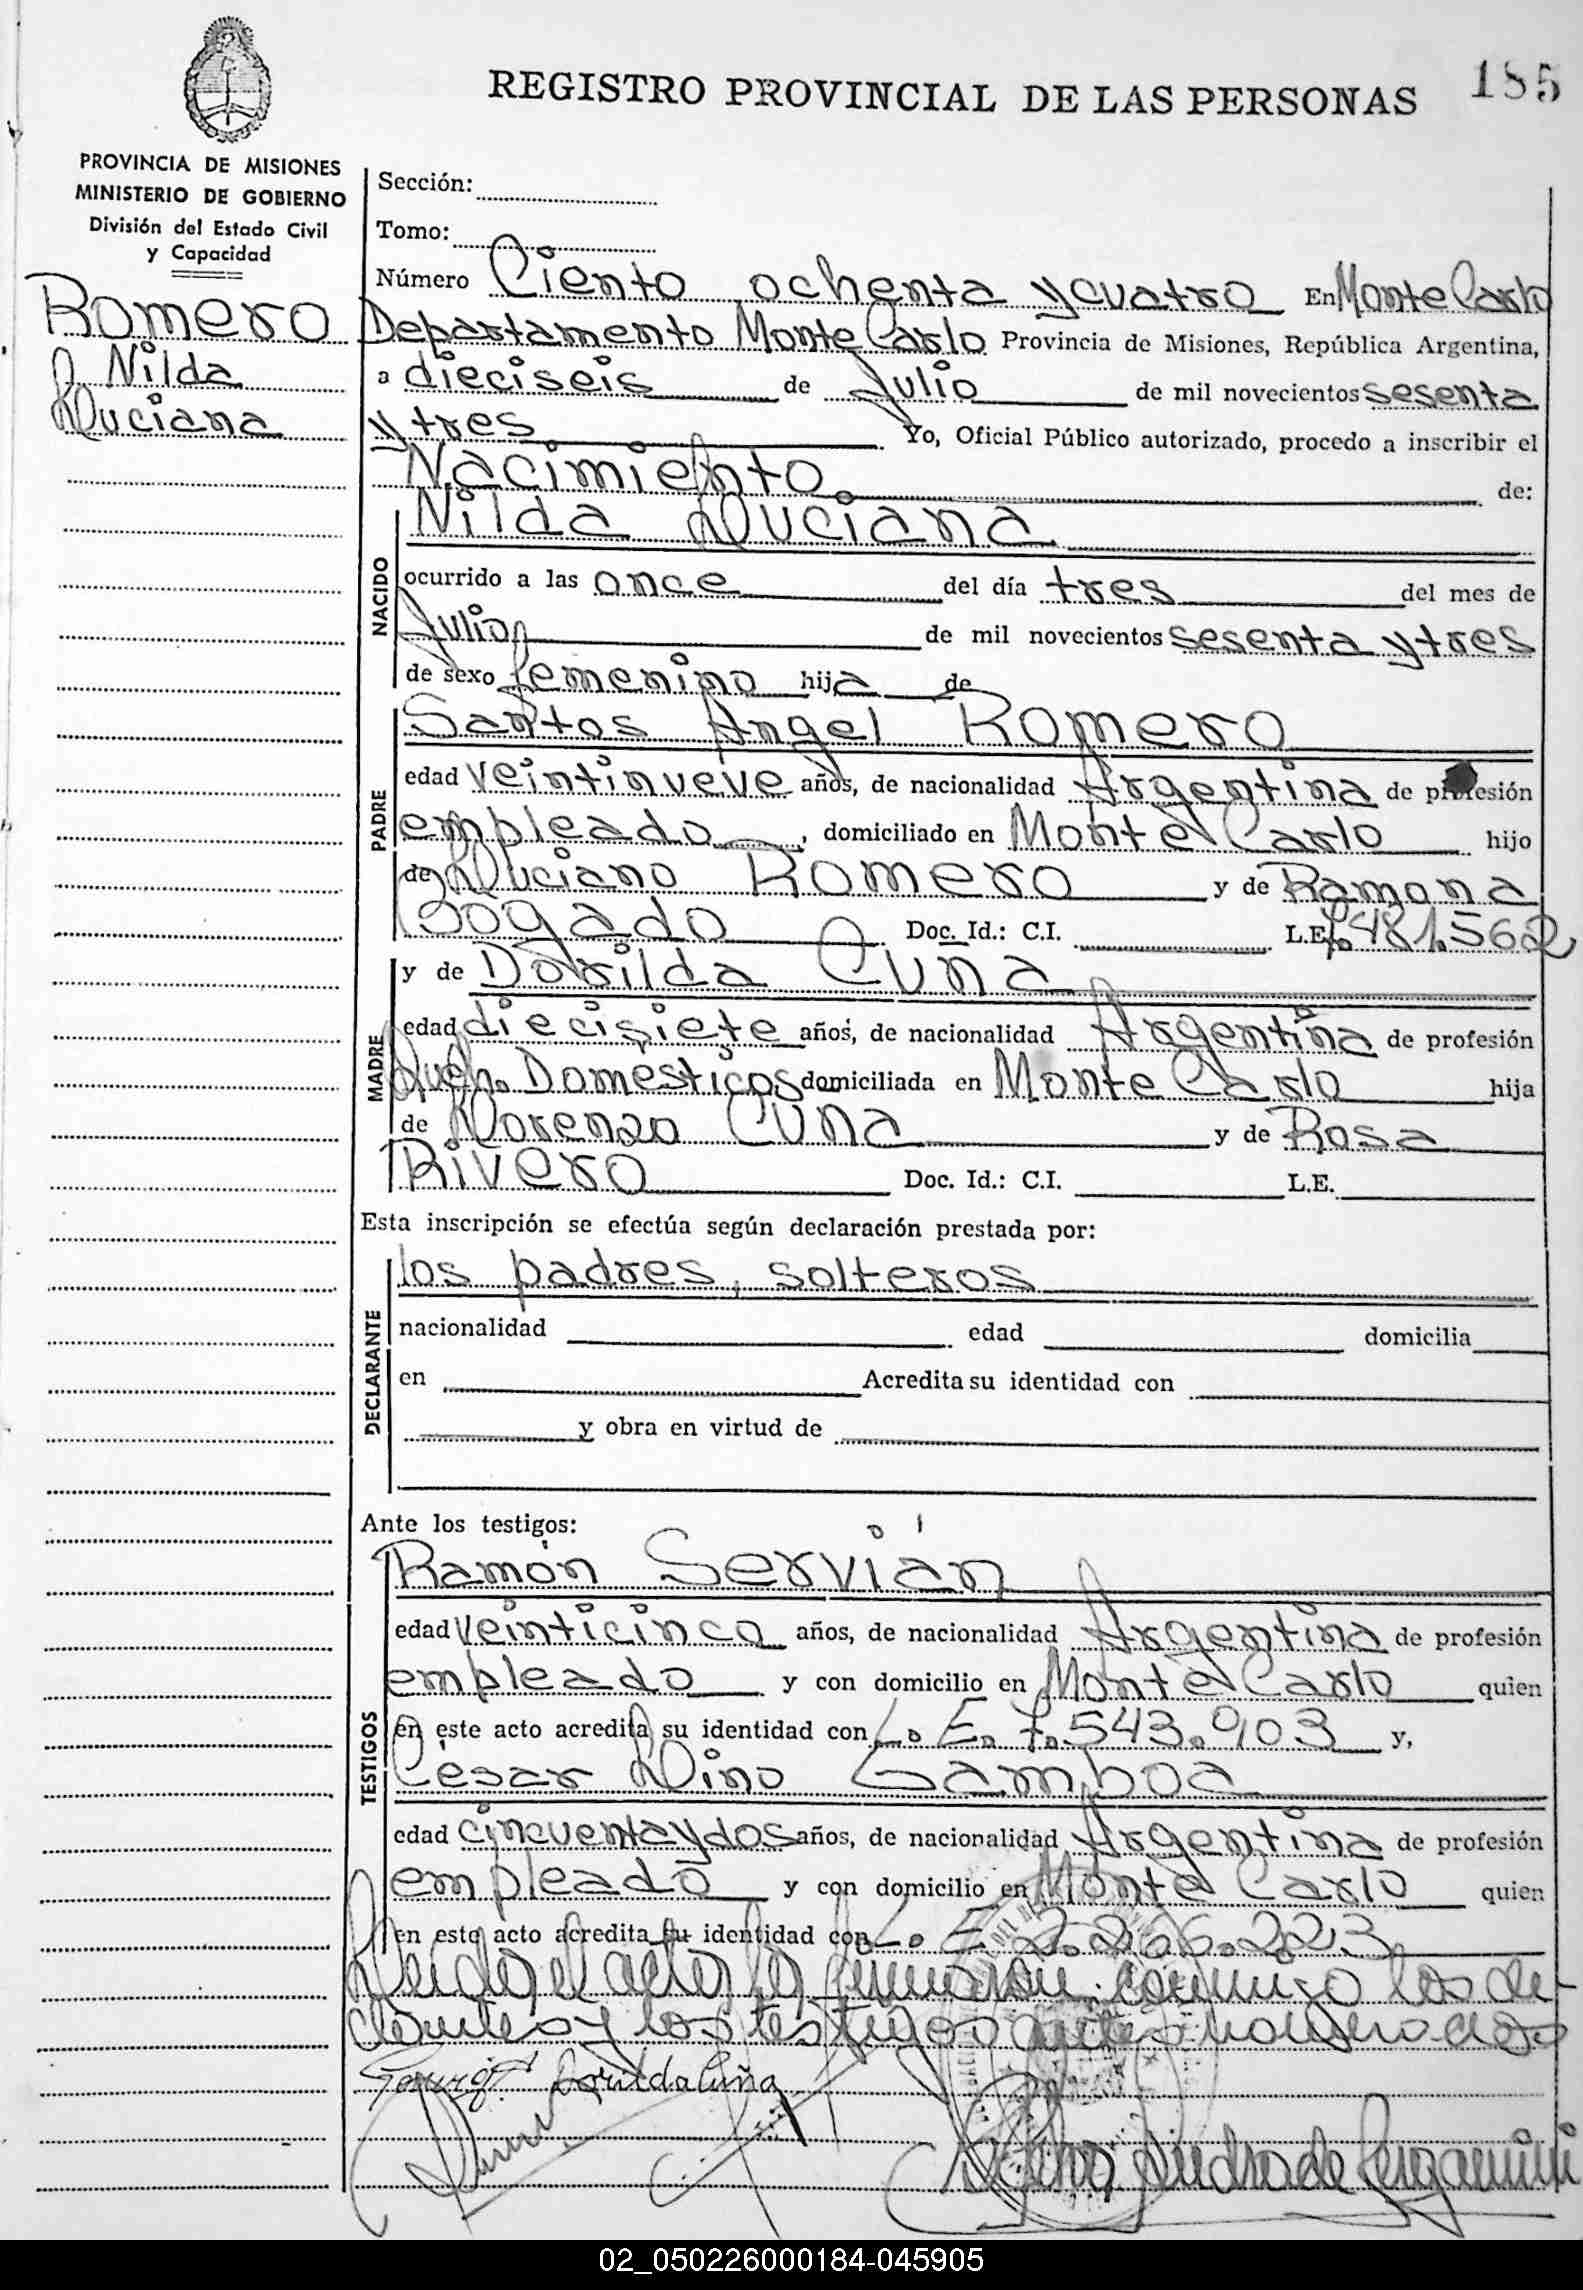 185
REGISTRO PROVINCIAL DE LAS PERSONAS
PROVINCIA DE MISIONES
MINISTERIO DE GOBIERNO
División del Estado Civil
y Capacidad
Romero
Nilda
Luciana
Sección:
Tomo:
Número Ciento ochenta y cuatro En Monte Carlo
Departamento Monte Carlo Provincia de Misiones, República Argentina,
a dieciseis de Julio de mil novecientos sesenta
y tres Yo, Oficial Público autorizado, procedo a inscribir el
Nacimiento de:
NACIDO
Nilda Luciana
ocurrido a las once del día tres del mes de
Julio de mil novecientos sesenta y tres
de sexo femenino hija de
PADRE
Santos Angel Romero
edad veintinueve años, de nacionalidad Argentina de profesión
empleado, domiciliado en Monte Carlo hijo
de Luciano Romero y de Ramona
Bogado Doc. Id.: C.I. L.E. 7.481.562
MADRE
y de Dorilda Cuna
edad diecisiete años, de nacionalidad Argentina de profesión
Queh. Domésticos domiciliada en Monte Carlo hija
de Lorenzo Cuna y de Rosa
Rivero Doc. Id.: C.I. L.E.
Esta inscripción se efectúa según declaración prestada por:
DECLARANTE
los padres, solteros
nacionalidad edad domicilia
en Acredita su identidad con
y obra en virtud de
Ante los testigos:
TESTIGOS
Ramón Servián
edad veinticinco años, de nacionalidad Argentina de profesión
empleado y con domicilio en Monte Carlo quien
en este acto acredita su identidad con L. E. 7.543.903 y,
César Lino Gamboa
edad cincuenta y dos años, de nacionalidad Argentina de profesión
empleado y con domicilio en Monte Carlo quien
en este acto acredita su identidad con L. E. 2.266.223
Leída el acta, la firmaron conmigo los de-
clarantes y los testigos antes nombrados
Dorilda Cuña
02_050226000184-045905